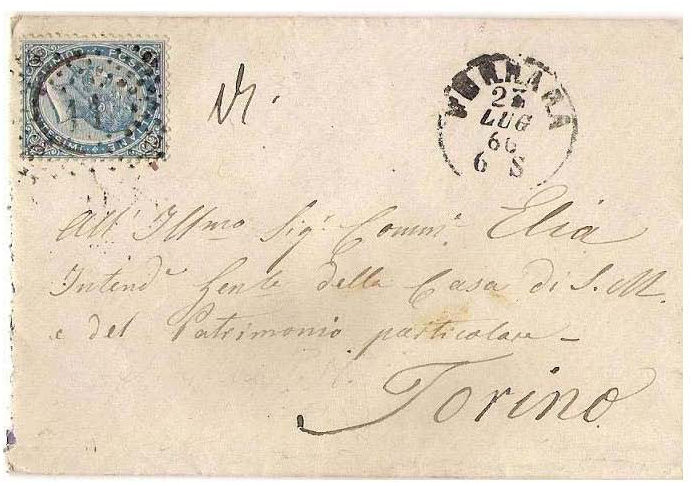 FERRARA
23
LUG
66
6 S
All' Illmo Sig.r Comm.r Elia
Intend.e Gen.le della Casa di S. M.
e del Patrimonio particolare –
Torino